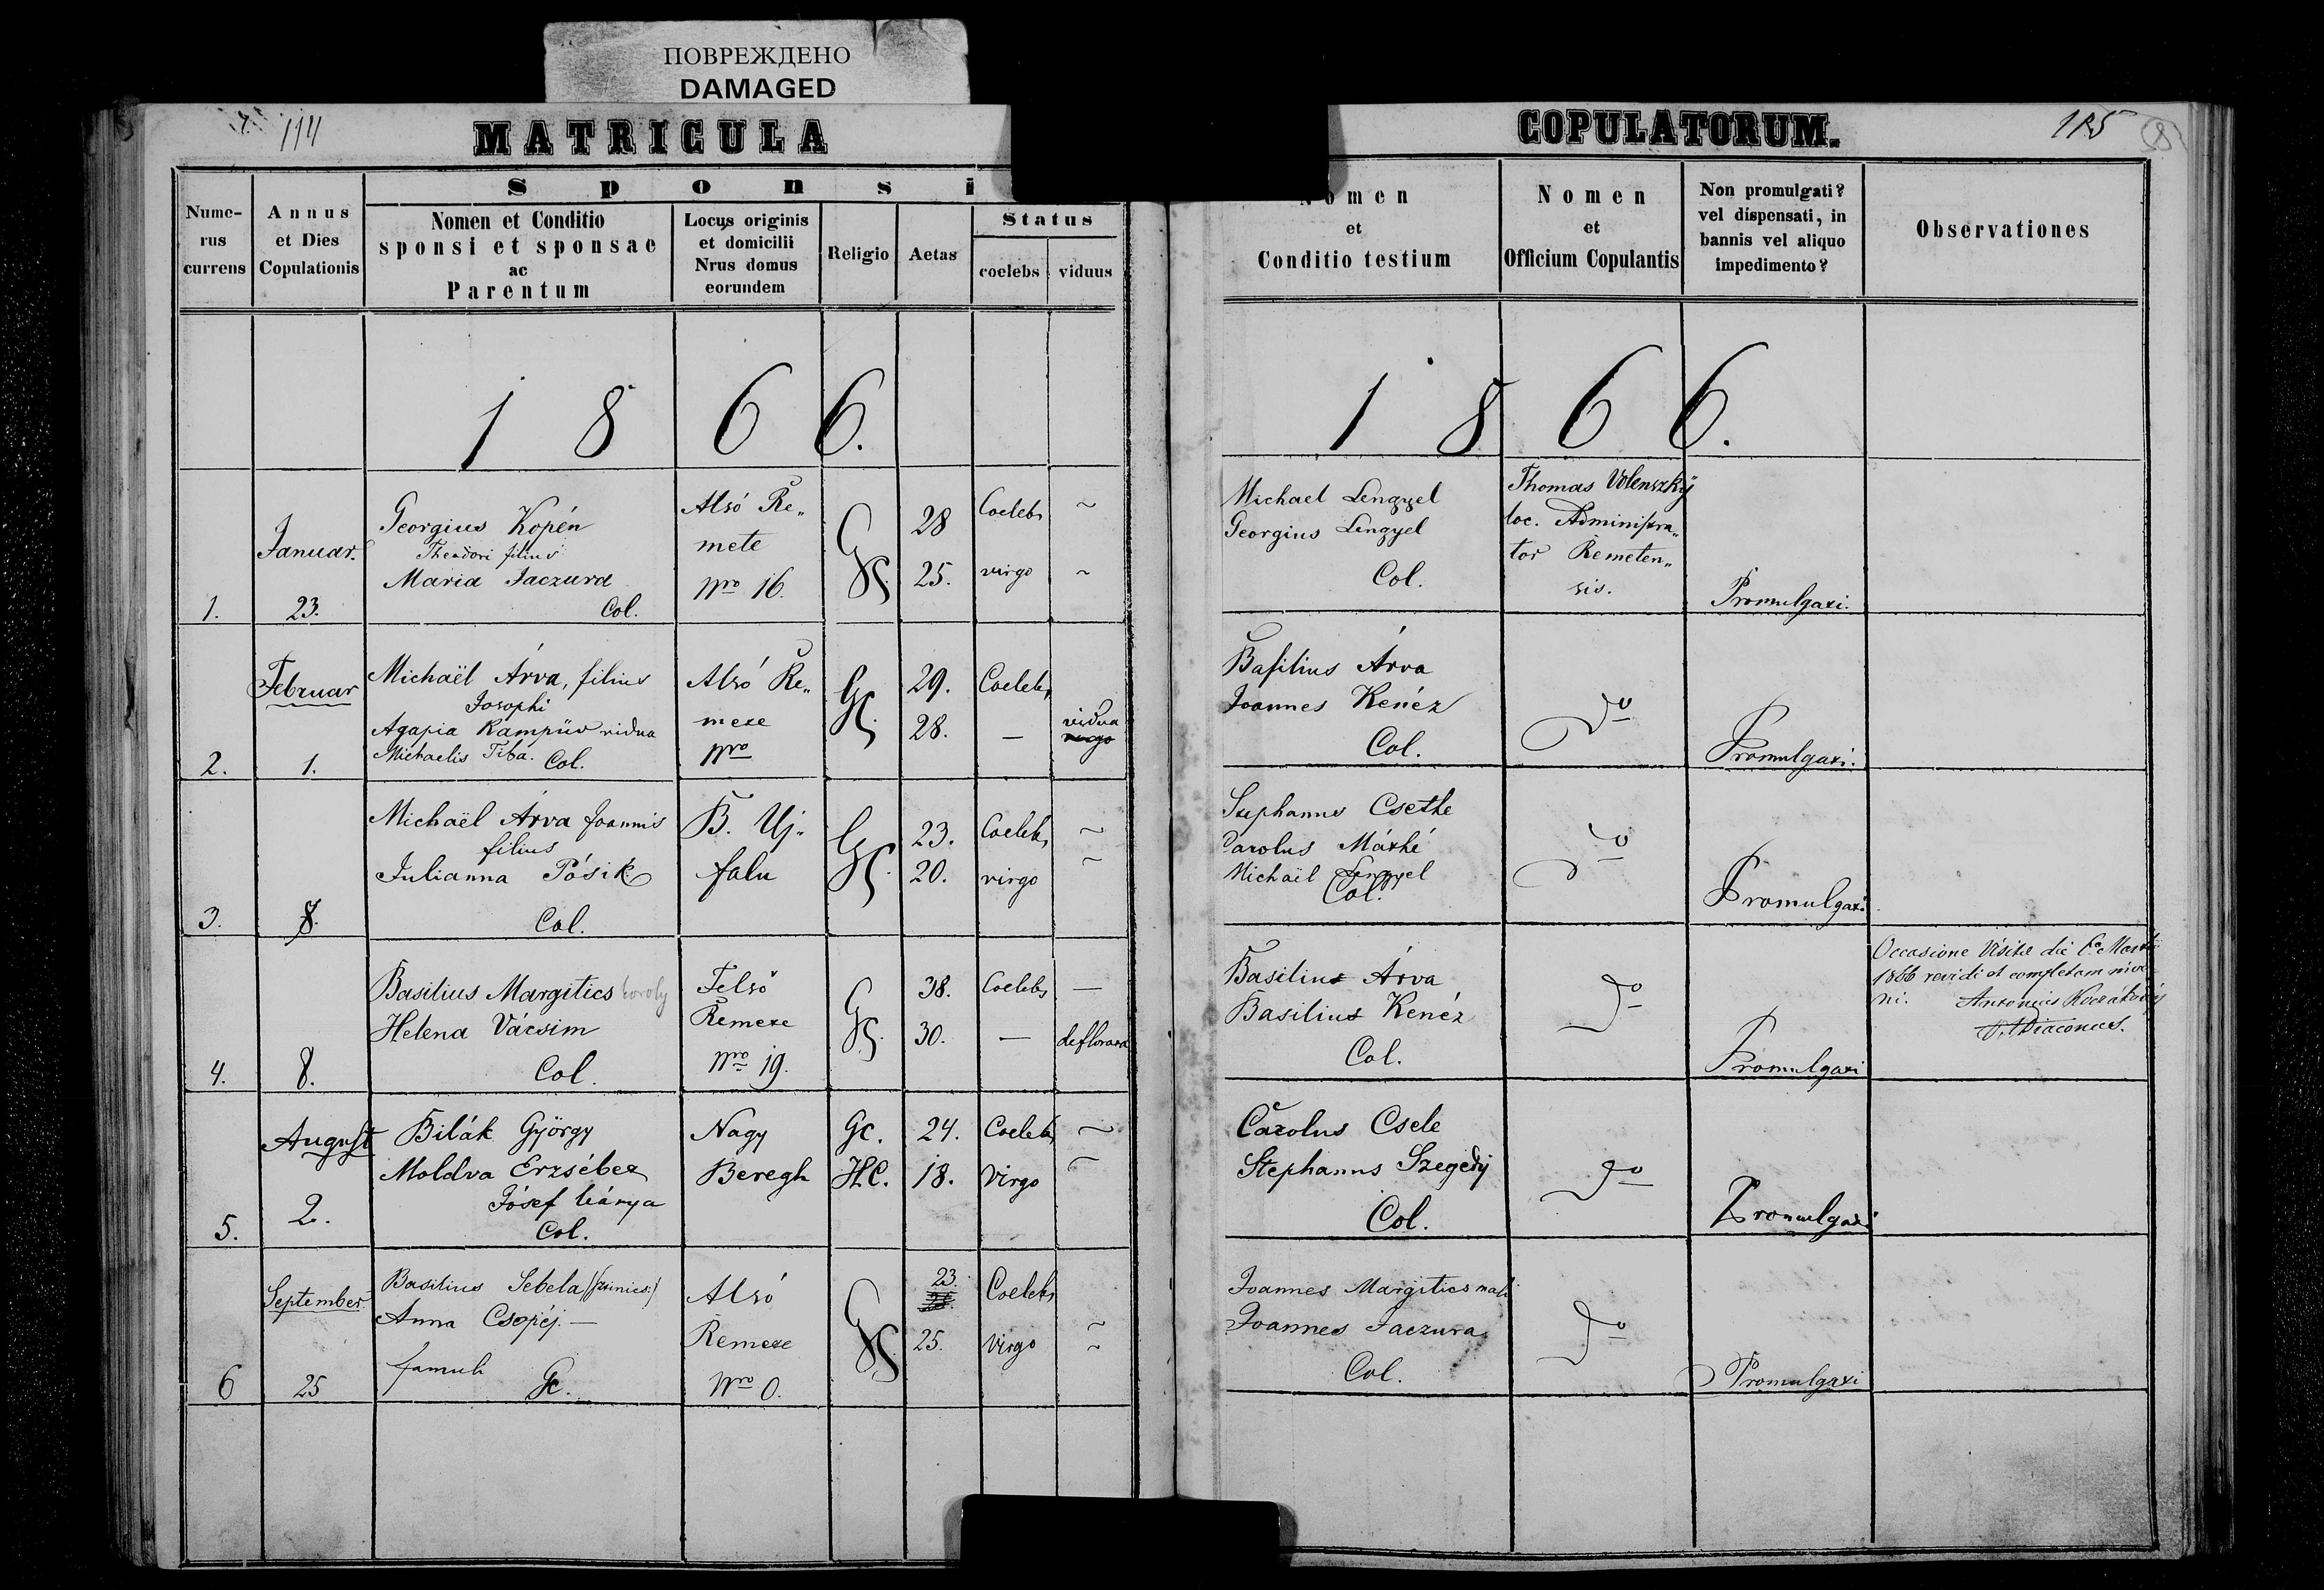 ПОВРЕЖДЕНО
DAMAGED
114
MATRICULA
Sponsi
Nume-
rus
currens
Annus
et Dies
Copulationis
Nomen et Conditio
sponsi et sponsae
ac
Parentum
Locus originis
et domicilii
Nrus domus
eorundem
Religio
Aetas
Status
coelebs
viduus
1866.
1.
Januar.
23.
Georgius Kopén
Theodori filius
Maria Jaczura
Col.
Alsó Re„
mete
Nro 16.
GC.
28
25.
Coelebs
virgo
~
~
2.
Februar
1.
Michaël Árva, filius
Josephi
Agapia vidua
Michaelis Tiba. Col.
Alsó Re„
mete
Nro
GC.
29.
28.
Coelebs
—
vidua
3.
8.
Michaël Árva Joannis
filius
Julianna Pósik
Col.
B. Uj-
falu
GC.
23.
20.
Coelebs
virgo
~
~
4.
8.
Basilius Margitics
Helena Vácsim
Col.
Felső
Remete
Nro 19.
GC.
38.
30.
Coelebs
—
—
deflorata
5.
August
2.
Bilák György
Moldva Erzsébet
Jósef leánya
Col.
Nagy
Beregh
Gc.
H.C.
24.
18.
Coelebs
Virgo
~
~
6
September
25
Basilius Sebela
Anna Csopéj. —
famuli Gc.
Alsó
Remete
Nro 0.
GC.
23.
25.
Coelebs
Virgo
~
~
COPULATORUM.
115
8
Nomen
et
Conditio testium
Nomen
et
Officium Copulantis
Non promulgati?
vel dispensati, in
bannis vel aliquo
impedimento?
Observationes
1866.
Michael Lengyel
Georgius Lengyel
Col.
Thomas Volenszky
loc. Administra„
tor Remeten„
sis.
Promulgati.
Basilius Árva
Joannes Kenéz
Col.
do
Promulgati.
Stephanus Csethe
Carolus Máthé
Michaël Lengyel
Col.
do
Promulgati
Basilius Árva
Basilius Kenéz
Col.
do
Promulgati
Occasione Visitae die
1866 revidi et
Antonius
Diaconus.
Carolus Csete
Stephanus Szegedy
Col.
do
Promulgati
Joannes Margitics
Joannes Jaczura
Col.
do
Promulgati